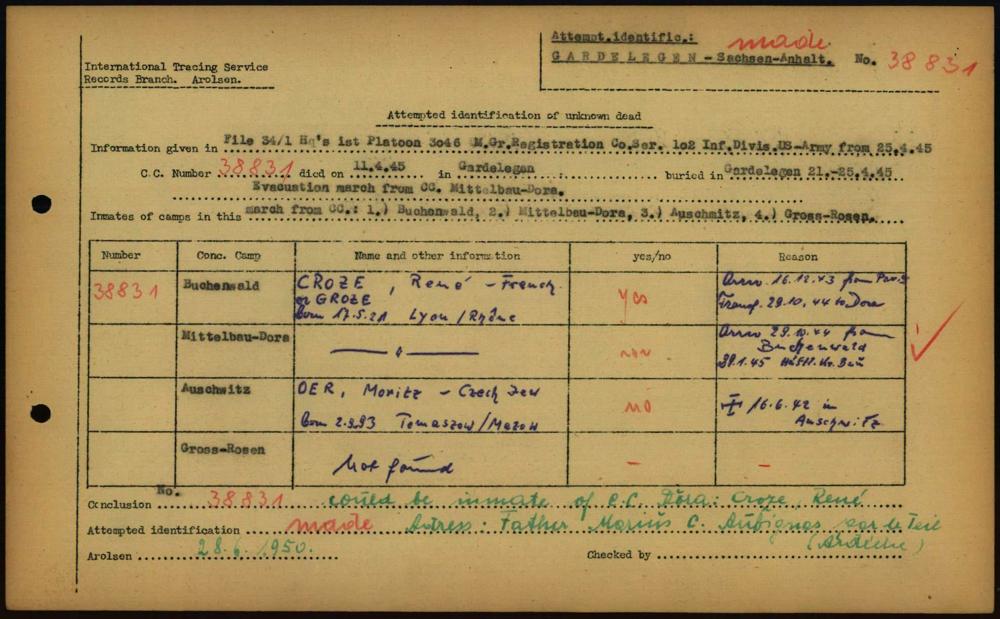 Attempt.identific.: made
GARDELEGEN - Sachsen-Anhalt. No. 38831
International Tracing Service
Records Branch. Arolsen.
Attempted identification of unknown dead
Information given in File 34/1 Hq's 1st Platoon 3046 QM.Gr.Registration Co.Ser. 102 Inf.Divis.US-Army from 25.4.45
C.C. Number 38831 died on 11.4.45 in Gardelegen buried in Gardelegen 21.-25.4.45
Evacuation march from CC. Mittelbau-Dora.
Inmates of camps in this march from CC.: 1.) Buchenwald, 2.) Mittelbau-Dora, 3.) Auschwitz, 4.) Gross-Rosen.
Number Conc. Camp Name and other information yes/no Reason
38831 Buchenwald CROZE, René - French yes Arriv. 16.12.43 from Paris
or GROZE Transf. 29.10.44 to Dora
born 17.5.21 Lyon/Rhône
Mittelbau-Dora — o — Arriv. 29.10.44 from
Buchenwald
Auschwitz OER, Moritz - Czech Jew no 16.6.42 in
born 2.9.93 Tomaszow/Mazow Auschwitz
Gross-Rosen Not found - -
Conclusion No. 38831 could be inmate of C.C. Dora: Croze, René
Attempted identification made Adress: Father Marius C. Aubignas par le Teil
(Ardèche)
Arolsen 28.6.1950. Checked by